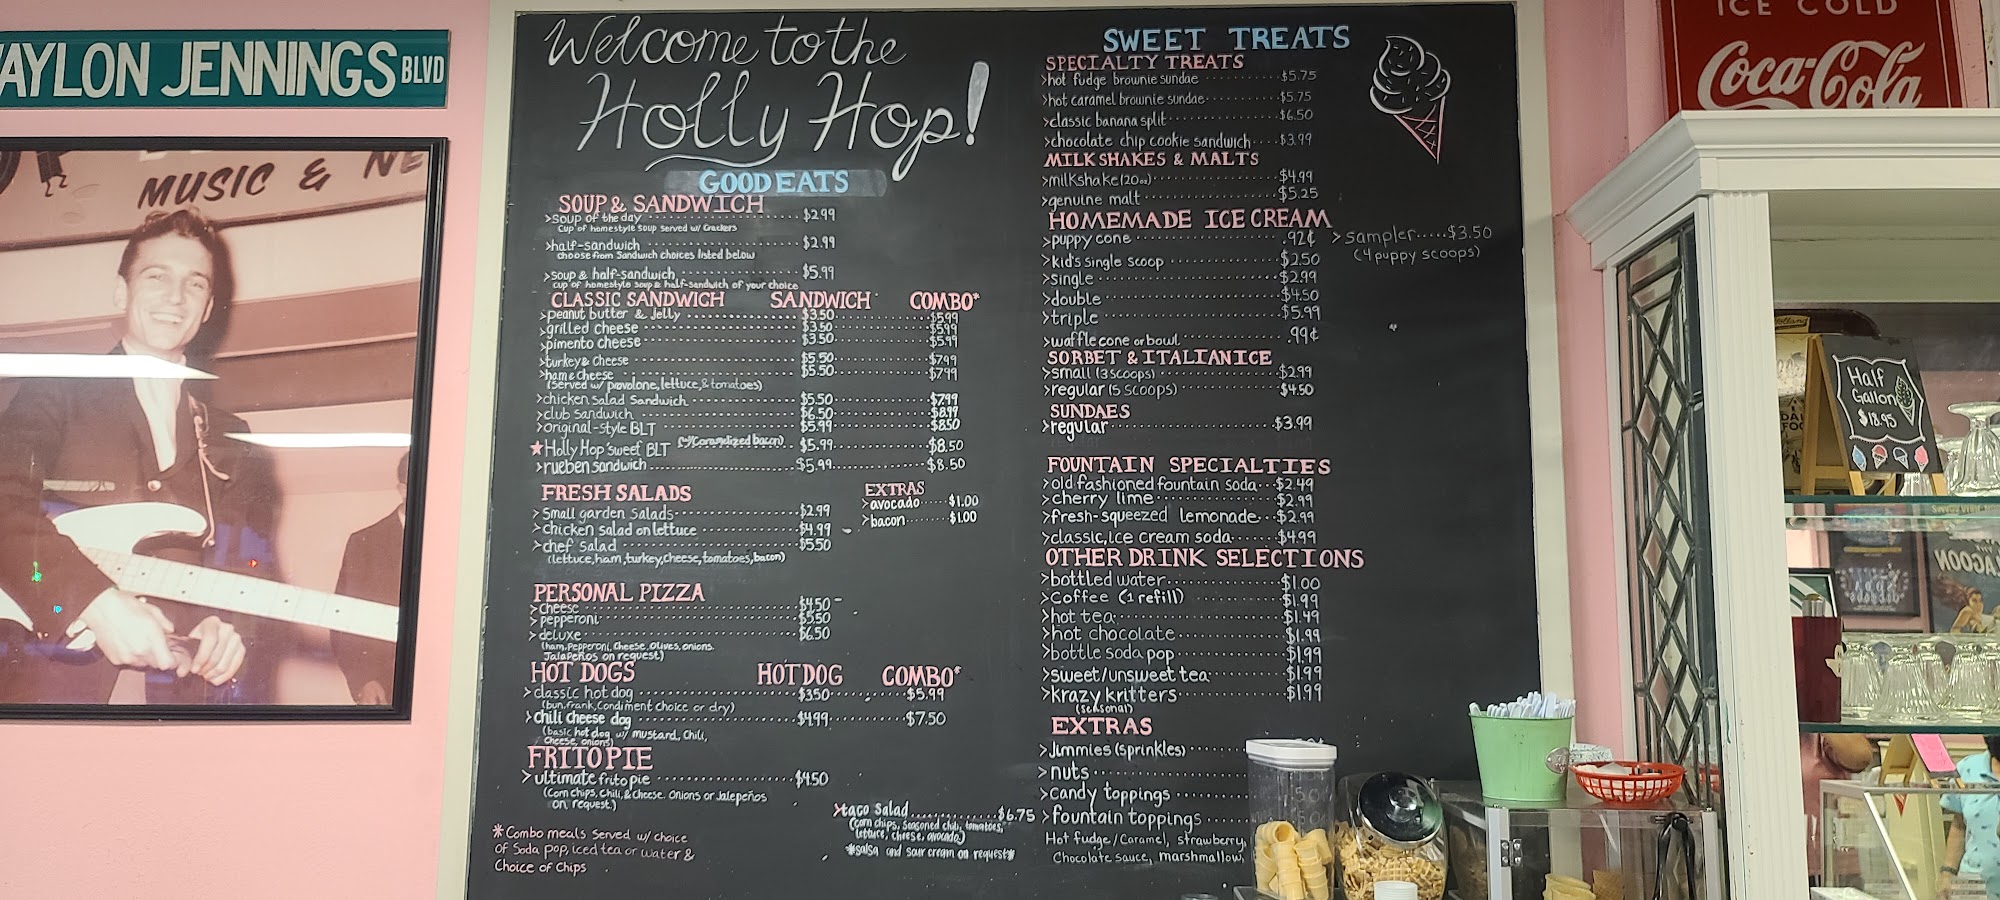 AYLON JENNINGS BLVD
MUSIC & NE
Welcome to the
Holly Hop!
GOOD EATS
SOUP & SANDWICH
>soup of the day $2.99
Cup of homestyle soup served w/ Crackers
>half-sandwich $2.99
choose from Sandwich choices listed below
>soup & half-sandwich $5.99
cup of homestyle soup & half-sandwich of your choice
CLASSIC SANDWICH SANDWICH COMBO*
>peanut butter & Jelly $3.50 $5.99
>grilled cheese $3.50 $5.99
>pimento cheese $3.50 $5.99
>turkey & cheese $5.50 $7.99
>ham & cheese $5.50 $7.99
(served w/ provolone, lettuce, & tomatoes)
>chicken salad sandwich $5.50 $7.99
>club sandwich $6.50 $8.99
>original-style BLT $5.99 $8.50
★Holly Hop sweet BLT (w/Caramelized bacon) $5.99 $8.50
>rueben sandwich $5.99 $8.50
FRESH SALADS
>small garden salads $2.99
>chicken salad on lettuce $4.99
>chef salad $5.50
(lettuce, ham, turkey, cheese, tomatoes, bacon)
EXTRAS
>avocado $1.00
>bacon $1.00
PERSONAL PIZZA
>cheese $4.50
>pepperoni $5.50
>deluxe $6.50
(ham, Pepperoni, Cheese, Olives, onions.
Jalapeños on request)
HOT DOGS HOT DOG COMBO*
>classic hot dog $3.50 $5.99
(bun, frank, Condiment choice or dry)
>chili cheese dog $4.99 $7.50
(basic hot dog w/ mustard, Chili,
Cheese, onions)
FRITO PIE
>ultimate frito pie $4.50
(Corn chips, Chili, & Cheese. Onions or Jalepeños
on request)
>taco salad $6.75
(corn chips, seasoned chili, tomatoes,
lettuce, cheese, avocado)
*salsa and sour cream on request*
*Combo meals served w/ choice
of Soda pop, iced tea or water &
Choice of Chips
SWEET TREATS
SPECIALTY TREATS
>hot fudge brownie sundae $5.75
>hot caramel brownie sundae $5.75
>classic banana split $6.50
>chocolate chip cookie sandwich $3.99
MILKSHAKES & MALTS
>milkshake (20oz) $4.99
>genuine malt $5.25
HOMEMADE ICE CREAM
>puppy cone .92¢
>kid's single scoop $2.50
>single $2.99
>double $4.50
>triple $5.99
>waffle cone or bowl .99¢
>sampler $3.50
(4 puppy scoops)
SORBET & ITALIAN ICE
>small (3 scoops) $2.99
>regular (5 scoops) $4.50
SUNDAES
>regular $3.99
FOUNTAIN SPECIALTIES
>old fashioned fountain soda $2.49
>cherry lime $2.99
>fresh-squeezed lemonade $2.99
>classic, Ice cream soda $4.99
OTHER DRINK SELECTIONS
>bottled water $1.00
>coffee (1 refill) $1.99
>hot tea $1.49
>hot chocolate $1.99
>bottle soda pop $1.99
>sweet/unsweet tea $1.99
>krazy kritters $1.99
(seasonal)
EXTRAS
>Jimmies (sprinkles)
>nuts
>candy toppings
>fountain toppings
Hot fudge/Caramel, strawberry,
Chocolate sauce, marshmallow,
ICE COLD
Coca-Cola
Half
Gallon
$18.95